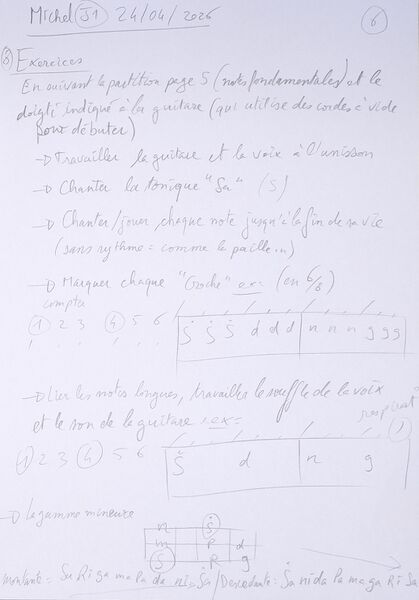 Michel J1 24/04/2026
6
⑧ Exercices
En suivant la partition page 5 (notes fondamentales) et le
doigté indiqué à la guitare (qui utilise des cordes à vide
pour débuter)
→ Travailler la guitare et la voix à l'unisson
→ Chanter la tonique "Sa" (S)
→ Chanter/jouer chaque note jusqu'à la fin de sa vie
(sans rythme = comme la paille...)
→ Marquer chaque "Croche" ex= (en 6/8)
compter
① 2 3 ④ 5 6 Ṡ Ṡ Ṡ d d d n n n g g g
→ Lier les notes longues, travailler le souffle de la voix
et le son de la guitare ex=
respirat°
① 2 3 ④ 5 6 Ṡ d n g
→ la gamme mineure
n Ṡ
m P d
S R g
montante = Sa Ri ga ma Pa da ni Ṡa / Descendante = Ṡa ni da Pa ma ga Ri Sa